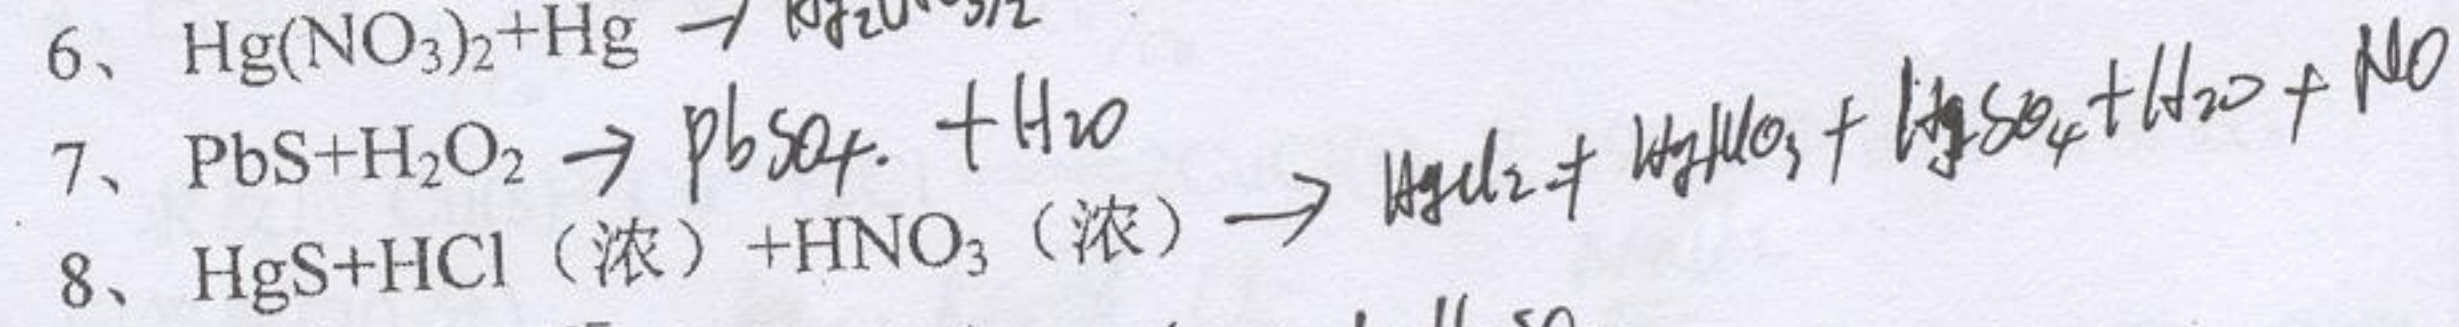 6、 Hg(NO₃)₂+Hg → Hg₂(NO₃)₂
7、 PbS+H₂O₂ → PbSO₄. + H₂O
8、 HgS+HCl（浓）+HNO₃（浓） → HgCl₂ + HgNO₃ + HgSO₄ + H₂O + NO